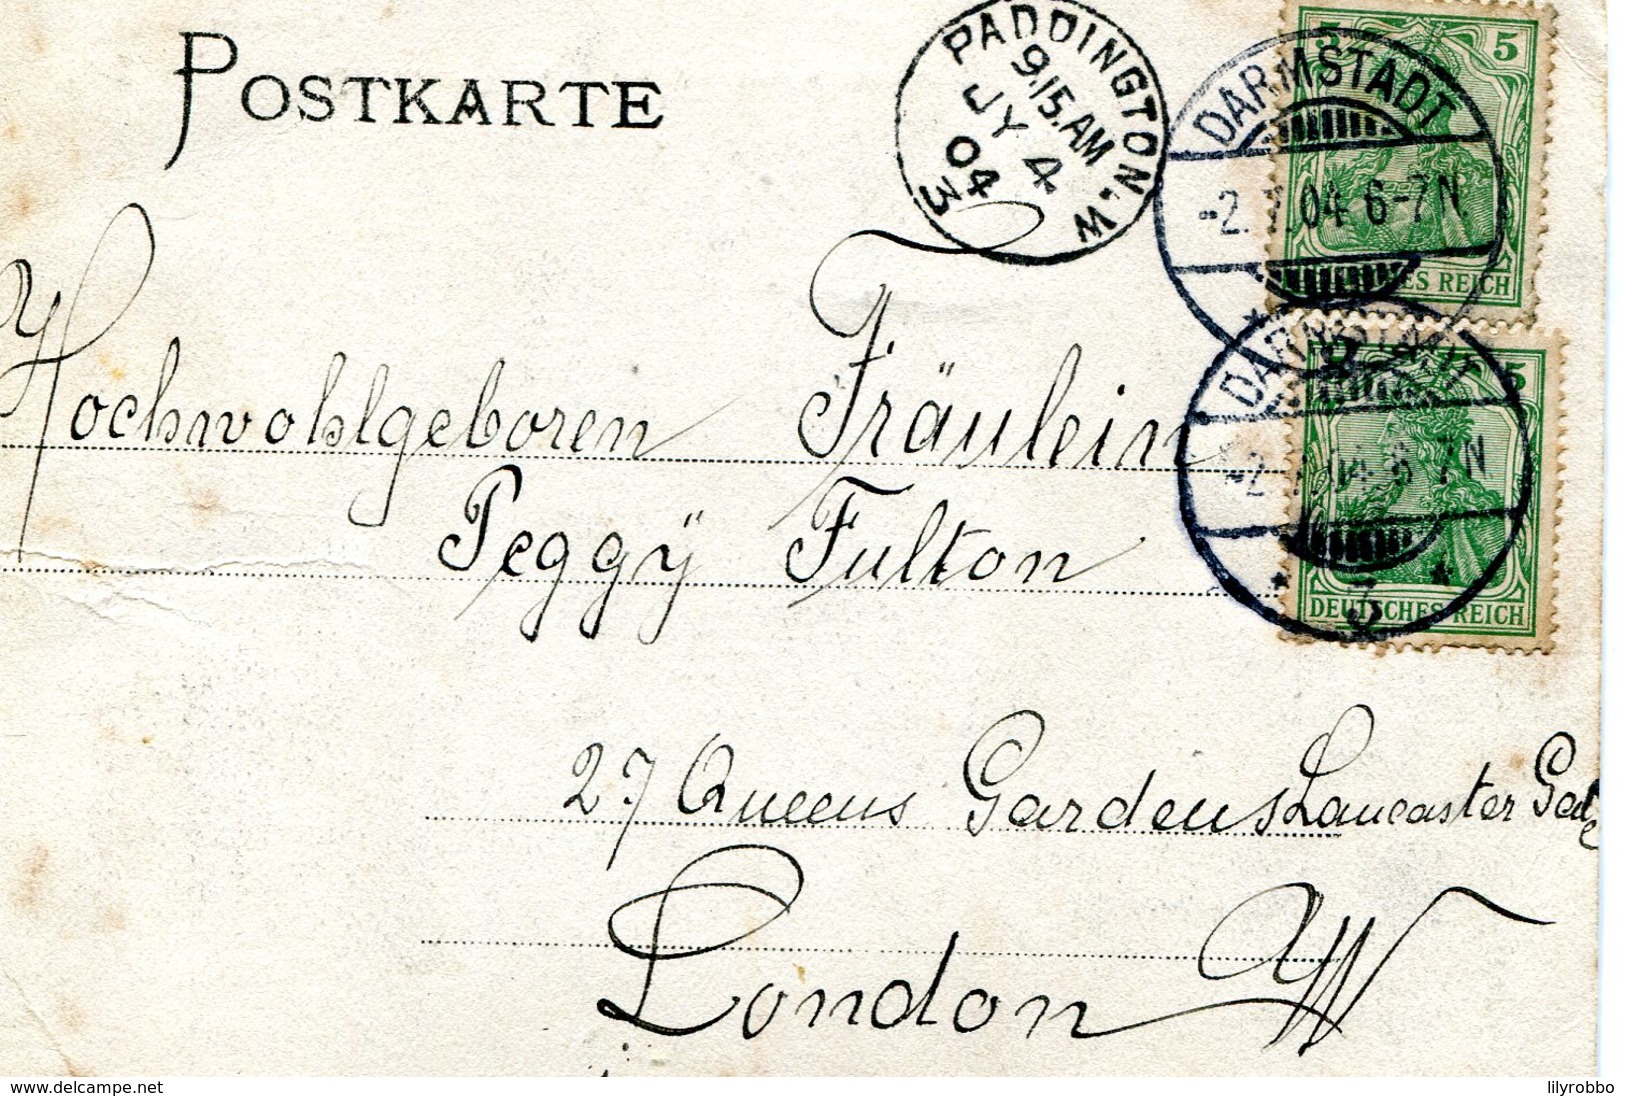 POSTKARTE
PADDINGTON.W
9.15.AM
JY 4
04
3
5 5
DARMSTADT
-2. 7. 04 6-7N.
REICH
DARMSTADT
5
-2. 7. 04 6-7N
DEUTSCHES REICH
Hochwohlgeboren Fräulein
Peggÿ Fulton
27 Queens Gardens Lancaster Gate
London W
www.delcampe.net
lilyrobbo